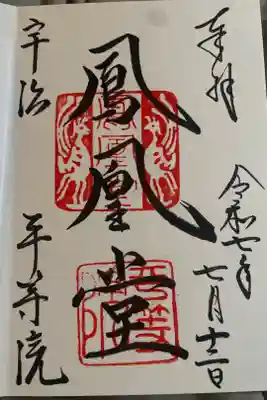 奉拝
令和七年
七月十二日
鳳凰堂
宇治
平等院